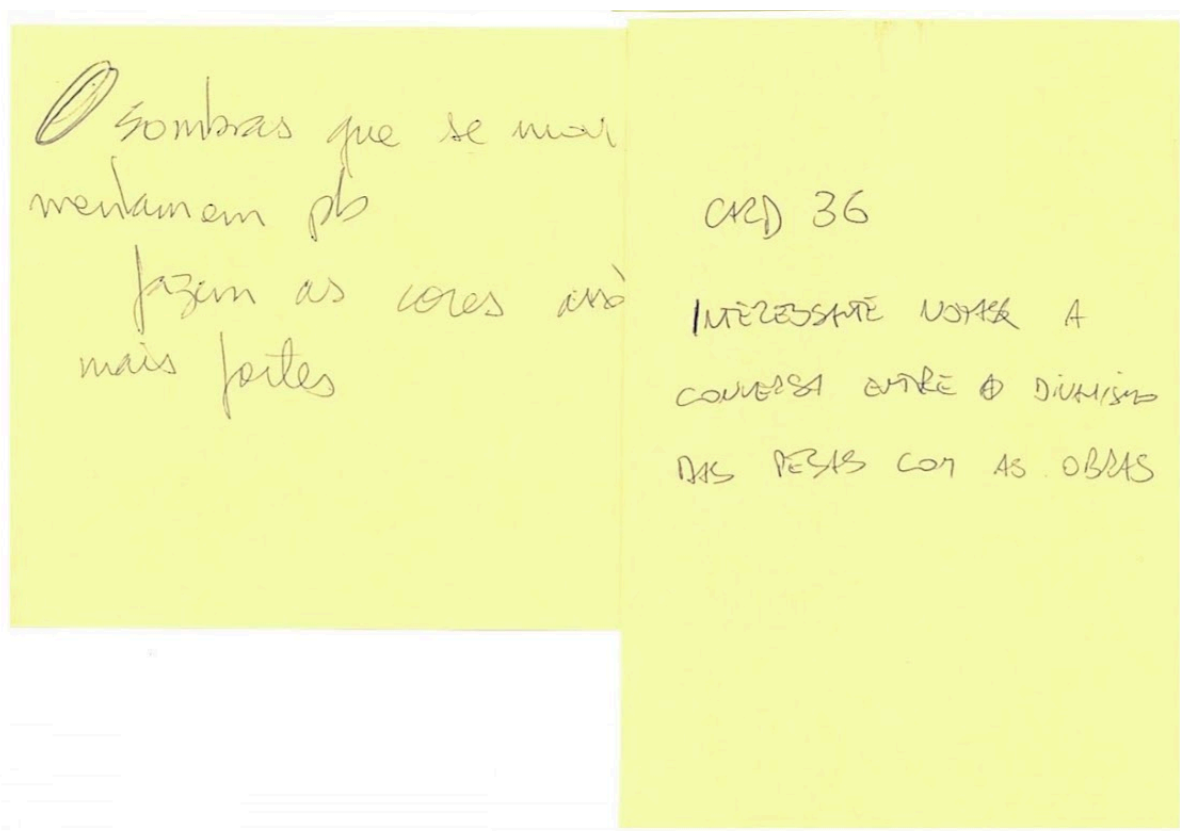 O sombras que se mov
mentam em pb
fazem as cores
mais fortes
CARD 36
INTERESSANTE NOTAR A
CONVERSA ENTRE O DINAMISMO
DAS PEÇAS COM AS OBRAS